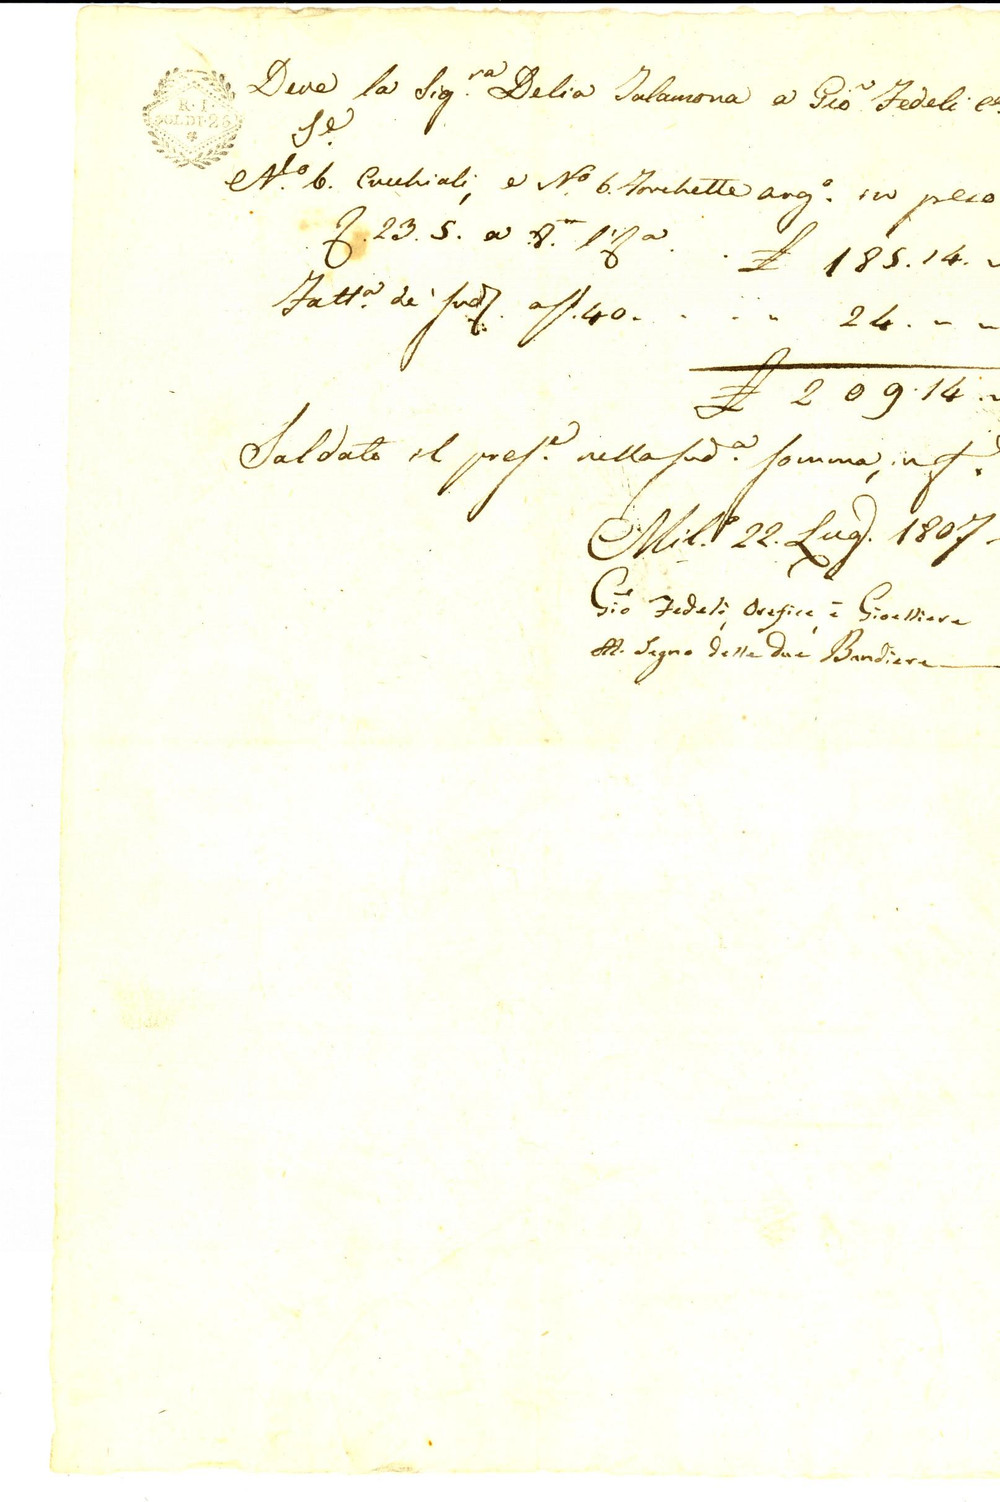 R. I.
SOLDI 25
Deve la Sig.ra Delia Talamona a Gio. Fedeli
Se
N.o 6. Cucchiali, e N.o 6. Forchette arg.o in peso
23. 5. a 8. £ 185. 14.
Fatt.a de' sudi. a s. 40. 24. - -
£ 209. 14.
Saldato il pres.e nella sud.a somma, in f.
Mil.o 22. Lug. 1807
Gio Fedeli, Orefice, e Gioelliere
Al. Segno delle due Bandiere